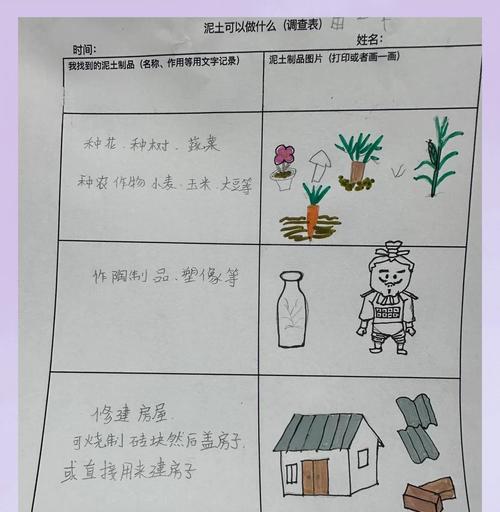 泥土可以做什么（调查表）
时间：
姓名：
我找到的泥土制品（名称、作用等用文字记录）
泥土制品图片（打印或者画一画）
种花、种树、蔬菜
种农作物 小麦、玉米、大豆等
作陶制品、塑像等
修建房屋
可烧制砖块然后盖房子
或直接用来建房子